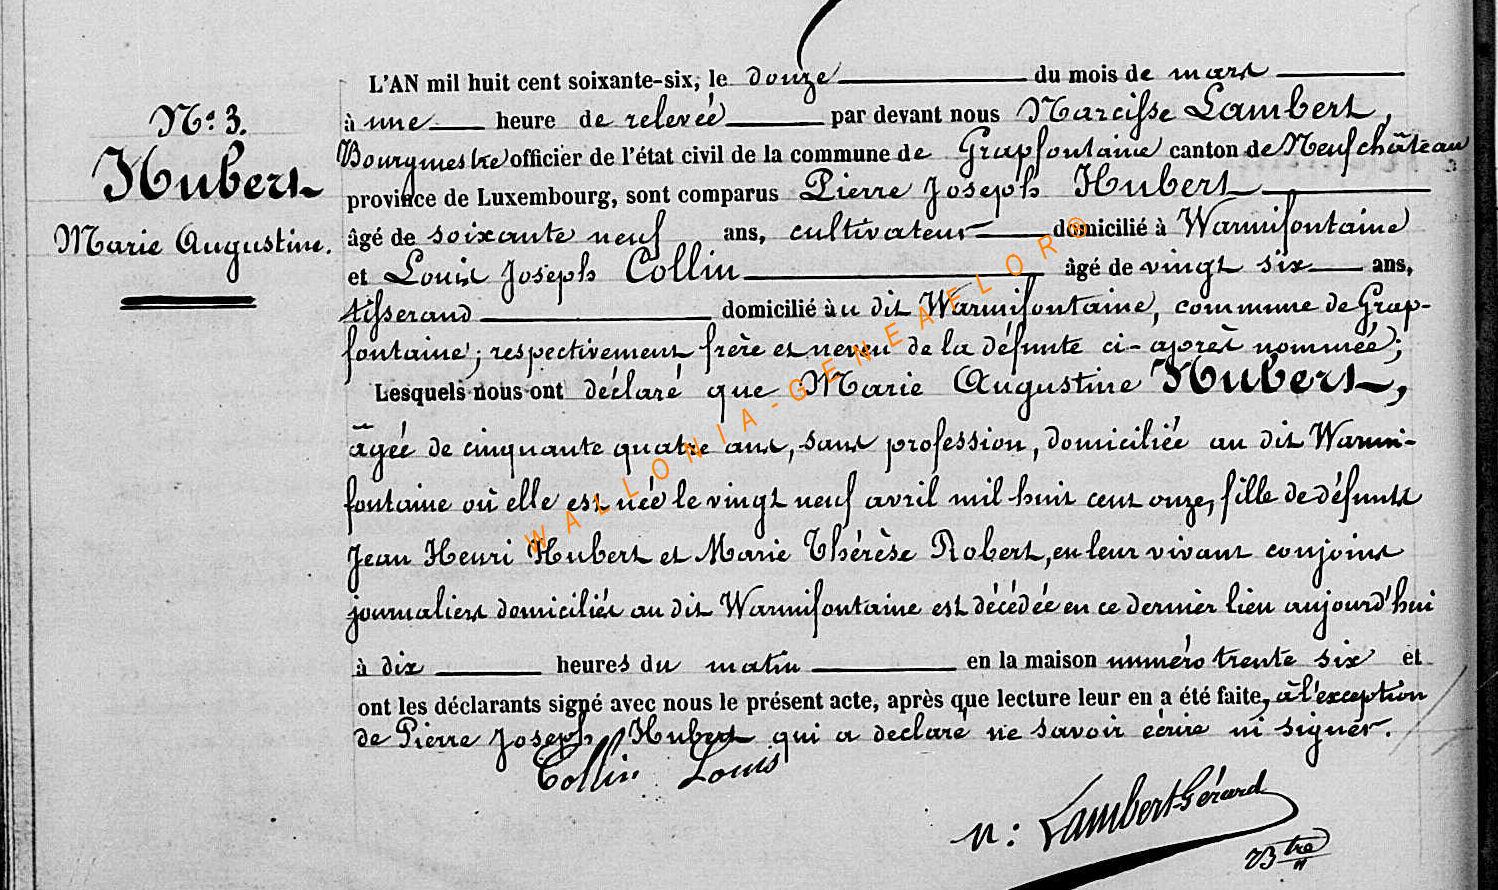 N.° 3.
Hubert
Marie Augustine.
L'AN mil huit cent soixante-six, le douze du mois de mars
à une heure de relevée par devant nous Narcisse Lambert,
Bourgmestre officier de l'état civil de la commune de Grapfontaine canton de Neufchâteau
province de Luxembourg, sont comparus Pierre Joseph Hubert
âgé de soixante neuf ans, cultivateur domicilié à Warmifontaine
et Louis Joseph Collin âgé de vingt six ans,
tisserand domicilié à u dit Warmifontaine, commune de Grap-
fontaine; respectivement frère et neveu de la défunte ci-après nommée;
Lesquels nous ont déclaré que Marie Augustine Hubert,
âgée de cinquante quatre ans, sans profession, domiciliée au dit Warmi-
fontaine où elle est née le vingt neuf avril mil huit cent onze, fille de défunts
Jean Henri Hubert et Marie Thérèse Robert, en leur vivant conjoints
journaliers domiciliés au dit Warmifontaine est décédée en ce dernier lieu aujourd'hui
à dix heures du matin en la maison numéro trente six et
ont les déclarants signé avec nous le présent acte, après que lecture leur en a été faite, à l'exception
de Pierre Joseph Hubert qui a déclaré ne savoir écrire ni signer.
Collin Louis
N: Lambert Gérard
Btre
WALLONIA-GENEAFLOR®